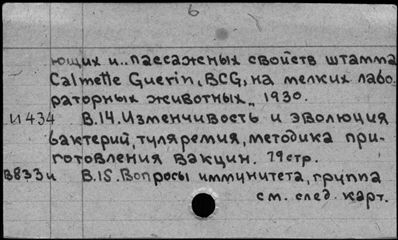 6
ющих и.. пассажных свойств штамма
Calmette Guerin, BCG, на мелких лабо.
раторных животных„ 1930.
И434 В.14. Изменчивость и эволюция
бактерий, туляремия, методика при-
готовления вакцин. 79стр.
В833и В.15. Вопросы иммунитета, группа
см. след. карт.